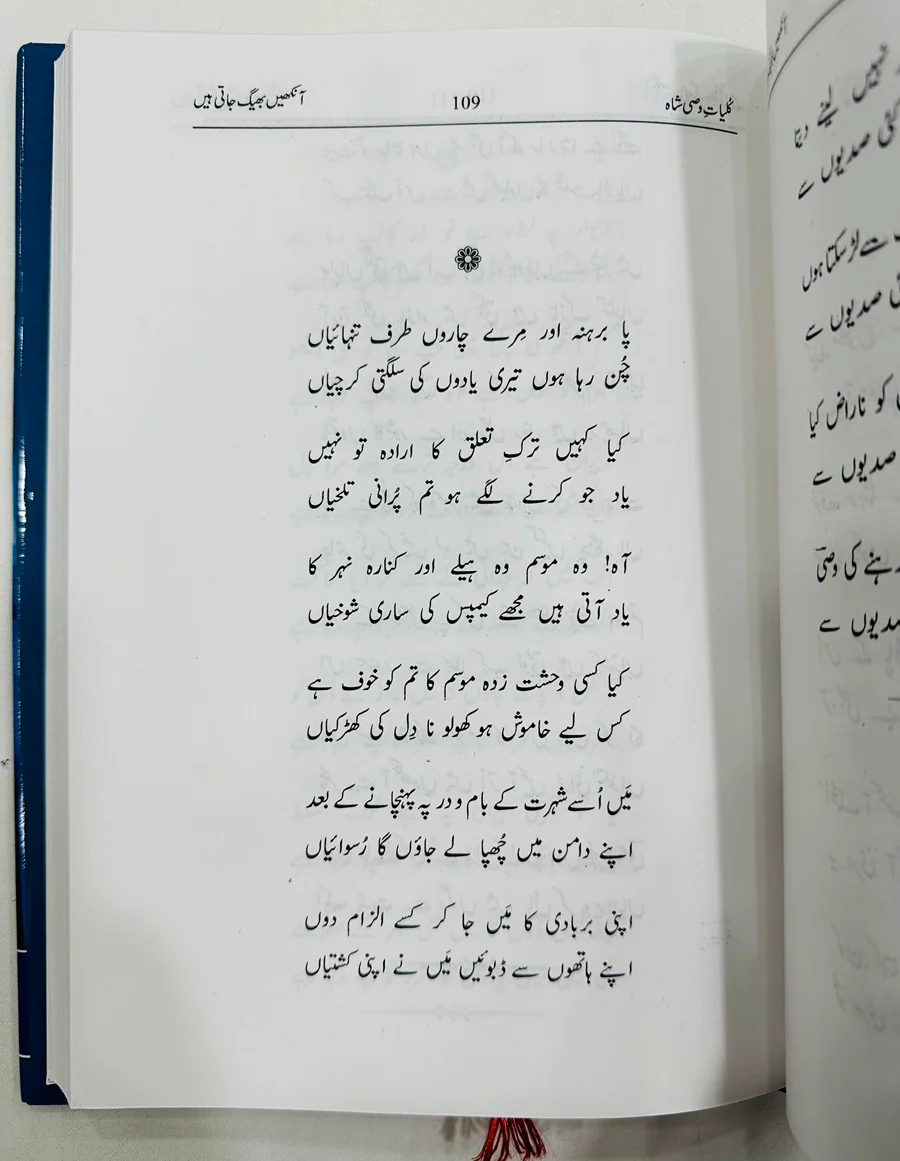 کُلیاتِ وصی شاہ
109
آنکھیں بھیگ جاتی ہیں
پا برہنہ اور مِرے چاروں طرف تنہائیاں
چُن رہا ہوں تیری یادوں کی سلگتی کرچیاں
کیا کہیں ترکِ تعلق کا ارادہ تو نہیں
یاد جو کرنے لگے ہو تم پُرانی تلخیاں
آہ! وہ موسم وہ ہیلے اور کنارہ نہر کا
یاد آتی ہیں مجھے کیمپس کی ساری شوخیاں
کیا کسی وحشت زدہ موسم کا تم کو خوف ہے
کس لیے خاموش ہو کھولو نا دِل کی کھڑکیاں
مَیں اُسے شہرت کے بام و در پہ پہنچانے کے بعد
اپنے دامن میں چُھپا لے جاؤں گا رُسوائیاں
اپنی بربادی کا مَیں جا کر کسے الزام دوں
اپنے ہاتھوں سے ڈبوئیں مَیں نے اپنی کشتیاں
نہیں لینے دیتا
کئی صدیوں سے
سے لڑ سکتا ہوں
صدیوں سے
کو ناراض کیا
صدیوں سے
کی وصی
صدیوں سے